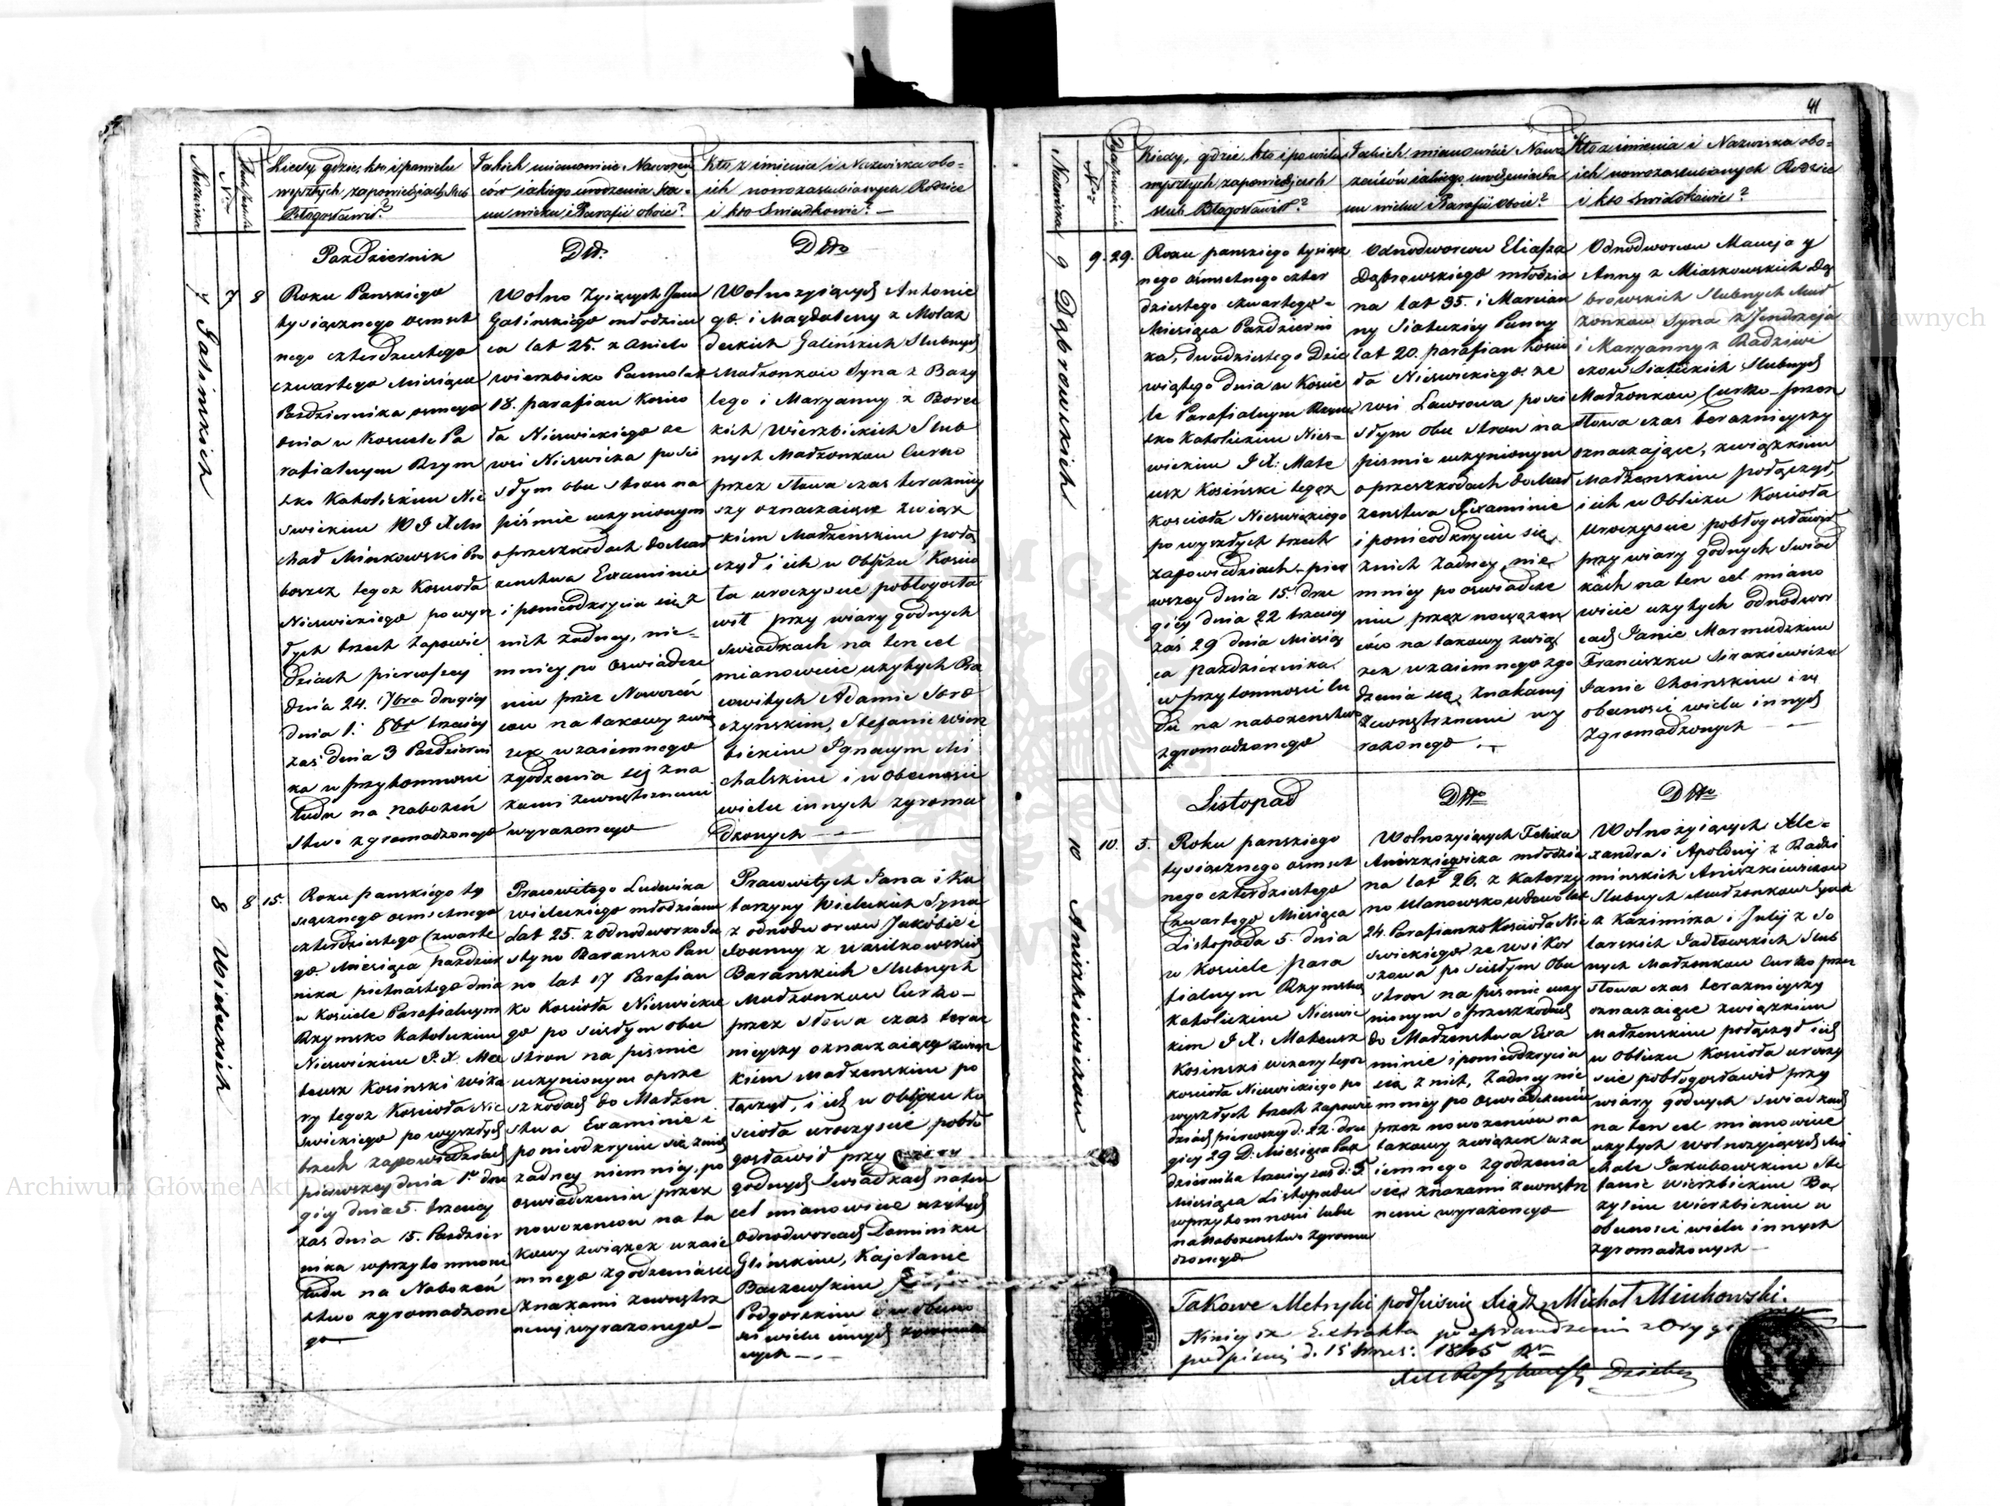 41
Nazwiska
Nro
Kiedy, gdzie, kto i po wielu
wyszłych zapowiedziach Szlub
Błogosławił?
Jakich mianowicie Nowożeń
ców jakiego urodzenia sta-
nu wieku i Parafii oboie?
Kto z imienia i Nazwiska obo-
ich nowozaslubionych Rodzice
i kto Swiadkowie? —
7
Galinskich
7
8
Pazdziernik
Roku Panskiego
tysiącznego osmset
nego czterdziestego
czwartego Miesiąca
Pazdziernika osmego
dnia w Kosciele Pa
rafialnym Rzym
sko Katolickim Nie
swickim W J X Mi
chał Minkowski Pro
boszcz tegoz Koscioła
Nieswickiego po wysz
łych trzech Zapowie
dziach pierwszey
dnia 24. 7bra drugiey
dnia 1. 8br trzeciey
zas dnia 3 Pazdzierni
ka w przytomnosci
ludu na nabozeń
stwo zgromadzonego
Dtto
Wolno Zyiących Jana
Galinskiego młodzien
ca lat 25. z Anielo
Wierzbicko Panno lat
18. parafian Koscio
ła Nieswickiego ze
wsi Nieswicza po sci
słym obu stron na
piśmie uczynionym
o przeszkodach do Mał
zenstwa Examinie
i ponieodkryciu się z
nich żadney, nie-
mniey po Oswiadcze
niu przez Nowożeń
ców na takowy zwią
zek wzaiemnego
zgodzenia się zna
kami zewnętrznemi
wyrażonego —
Dtto
Wolnozyiących Antonie
go i Magdaleny z Molaz
deckich Galinskich Slubnych
Małzonkow Syna z Bazy
lego i Maryanny z Borec
kich Wierzbickich Slub
nych Małzonkow Curko
przez słowa czas terazniey
szy oznaczaiące zwiąs
kiem Małzenskim połą
czył i ich w Obliczu Koscio
ła uroczyscie pobłogosła
wił przy wiary godnych
swiadkach na ten cel
mianowicie uzytych Pra
cowitych Adamie Soro
czynskim, Stefanie Wierz
bickim Ignacym Mi
chalskim i w Obecnosci
wielu innych zgroma
dzonych — —
8
Wieluckich
8
15.
Roku panskiego ty
siącznego osmsetnego
czterdziestego Czwarte
go Miesiąca pazdzier
nika pietnastego dnia
w Kosciele Parafialnym
Rzymsko Katolickim
Nieswickim J. X. Ma
teusz Kosinski wika
ry tegoz Koscioła Nie
swickiego po wyszłych
trzech zapowiedziach
pierwszey dnia 1o dru
giey dnia 5. trzeciey
zas dnia 15. Pazdzier
nika w przytomnosci
ludu na Nabozeń
stwo zgromadzone
go —
Pracowitego Ludwika
Wieluckiego młodziana
Lat 25. z Odnodworko Ju
styno Baransko Pan
no lat 17 Parafian
ko Koscioła Nieswickie
go po scisłym obu
stron na piśmie
uczynionym o prze
szkodach do Małzen
stwa Examinie i
ponieodkryciu się z nich
żadney niemniey po
oswiadczeniu przez
nowozencow na ta
kowy związek wzaie
mnego zgodzenia się
znakami zewnętrz
nemi wyrażonego —
Pracowitych Jana i Ka
tarzyny Wieluckich Syna
z odnodworcow Jakóba i
Joanny z Wasilkowskich
Baranskich Slubnych
Małzonkow Curko —
przez słowa czas teraz
nieyszy oznaczaiące zwiąs
kiem Małzenskim po
łączył, i ich w Obliczu Ko
scioła uroczyscie pobło
gosławił przy wiary
godnych Swiadkach na ten
cel mianowicie uzytych
Odnodworcach Dominiku
Glinskim, Kajetanie
Baczewskim
Podgorskim i w obecno
sci wielu innych zgromadzo
nych — —
Nazwiska
Nro
Kiedy, gdzie, kto i po wielu
wyszłych zapowiedziach
slub Błogosławił?
Jakich mianowicie Nowo
zeńców jakiego urodzenia sta
nu wieku i Parafii oboie?
Kto z imienia i Nazwiska obo-
ich nowozaslubionych Rodzice
i kto Swiadkowie?
9
Dąbrowskich
9.
29.
Roku panskiego tysiącz
nego osmsetnego czter
dziestego czwartego
Miesiąca Pazdzierni
ka, dwudziestego Dzie
wiątego dnia w Koscie
le Parafialnym Rzym
sko Katolickim Nies-
wickim J X. Mate
usz Kosiński tegoz
Koscioła Nieswickiego
po wyszłych trzech
zapowiedziach pier
wszey dnia 15. dru
giey dnia 22 trzeciey
zas 29 dnia Miesią
ca pazdziernika
w przytomnosci lu
du na nabozenstwo
zgromadzonego
Odnodworcow Eliasza
Dąbrowskiego młodzia
na lat 35. i Marcian
ny Siatuckiey Panny
lat 20. parafian Koscio
ła Nieswickiego ze
wsi Ławrowa po sci
słym obu stron na
piśmie uczynionym
o przeszkodach do Mał
zenstwa Examinie
i ponieodkryciu się
z nich żadney nie
mniey po oswiadcze
niu przez nowozeń
ców na takowy zwią
zek wzaiemnego zgo
dzenia się znakami
zewnętrznemi wy
rażonego —
Odnodworcow Macieja y
Anny z Miaskowskich Dą
browskich Slubnych Mał
zonkow Syna z Jendrzeja
i Maryanny z Radziwi
czow Siatuckich Slubnych
Małzonkow Curko przez
słowa czas teraznieyszy
oznaczające, związkiem
Małzenskim połączył
i ich w Obliczu Koscioła
Uroczyscie pobłogosławił
przy wiary godnych Swiad
kach na ten cel miano
wicie uzytych odnodwor
cach Janie Marmudzkim
Franciszku Sirakiewiczu
Janie Choinskim i w
obecnosci wielu innych
Zgromadzonych — —
10
Aniszkiewiczow
10.
5.
Listopad
Roku panskiego
tysiącznego osmset
nego czterdziestego
Czwartego Miesiąca
Listopada 5. dnia
w Kosciele Para
fialnym Rzymsko
Katolickim Nieswic
kim J X. Mateusz
Kosinski wikary tegoz
Koscioła Nieswickiego po
wyszłych trzech zapowie
dziach pierwszey d. 22. dru
giey 29 D. Miesiąca Paz
dziernika trzeciey zas d. 5
Miesiąca Listopadu
w przytomnosci ludu
na Nabozenstwo Zgroma
dzonego
Dtto
Wolnozyiących Felixa
Aniszkiewicza młodzia
na lat 26. z Katarzy
no Ulanowsko wdowo lat
24. Parafianko Koscioła Nie
swickiego ze wsi Kor
szowa po scisłym Obu
stron na piśmie uczy
nionym o przeszkodach
do Małzenstwa Exa
minie i ponieodkryciu
się z nich, żadney nie
mniey po Oswiadczeniu
przez nowozeńców na
takowy związek wza
iemnego zgodzenia
się znakami zewnętrz
nemi wyrażonego —
Dtto
Wolnozyiących Ale-
xandra i Apolonij z Radzi
minskich Aniszkiewiczow
Slubnych Małzonkow Syna
z Kazimirza i Julij z So
larskich Jadłowskich Slub
nych Małzonkow Curko przez
słowa czas teraznieyszy
oznaczaiące związkiem
Małzenskim połączył i ich
w Obliczu Koscioła uroczy
scie pobłogosławił przy
wiary godnych Swiadkach
na ten cel mianowicie
uzytych wolnozyiących Mi
chale Jakubowskim Ste
fanie Wierzbickim Ba
zylim Wierzbickim w
obecnosci wielu innych
Zgromadzonych —
Takowe Metryki podpisuię Xiądz Michał Minkowski.
Ninieysze Extrakta po sprawdzeniu z Orygi
podpisuię d. 15 1845 Ru
Archiwum Główne Akt Dawnych
Archiwum Główne Akt Dawnych